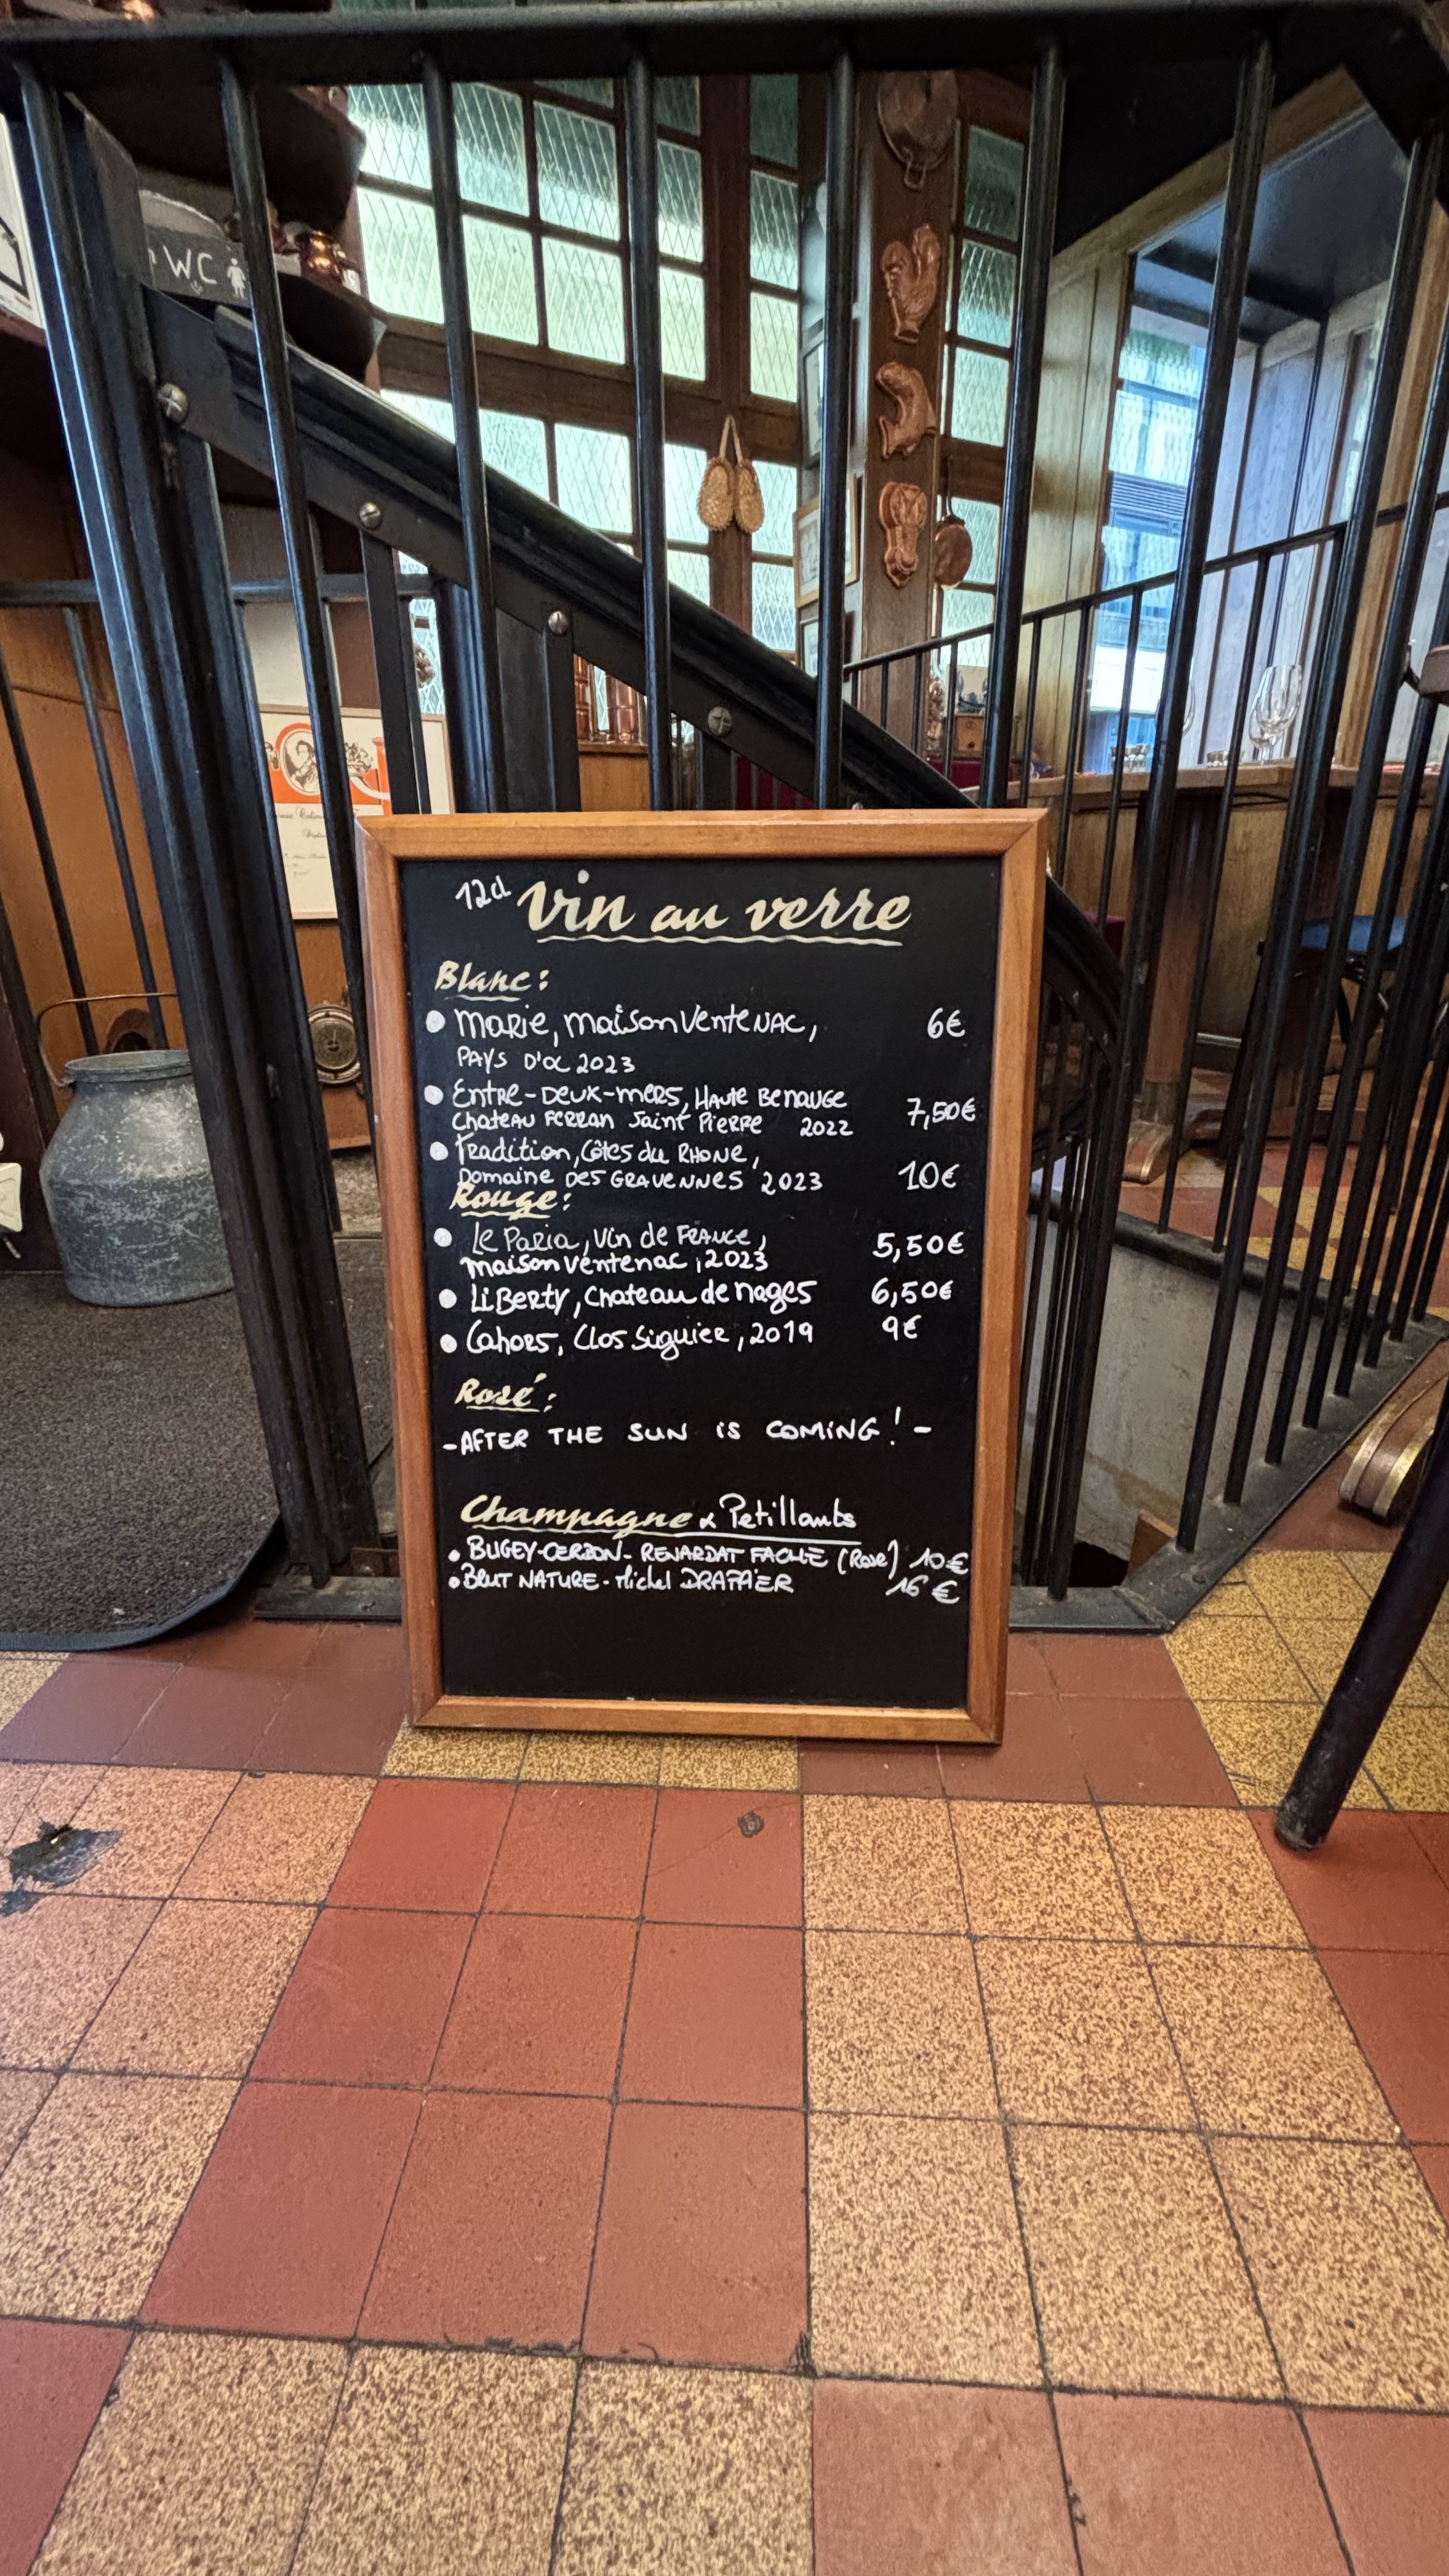 WC
12cl Vin au verre
Blanc:
Marie, Maison Ventenac, 6€
PAYS D'OC 2023
Entre-Deux-Mers, Haute Benauge
Chateau Ferran Saint Pierre 2022 7,50€
Tradition, Côtes du Rhone,
Domaine des Gravennes 2023 10€
Rouge:
Le Paria, Vin de France, 5,50€
Maison Ventenac, 2023
Liberty, Chateau de Nages 6,50€
Cahors, Clos Siguier, 2019 9€
Rosé:
-AFTER THE SUN IS COMING! -
Champagne & Petillants
BUGEY-CERDON- RENARDAT FACHE (Rose) 10€
BRUT NATURE - Michel DRAPPIER 16€